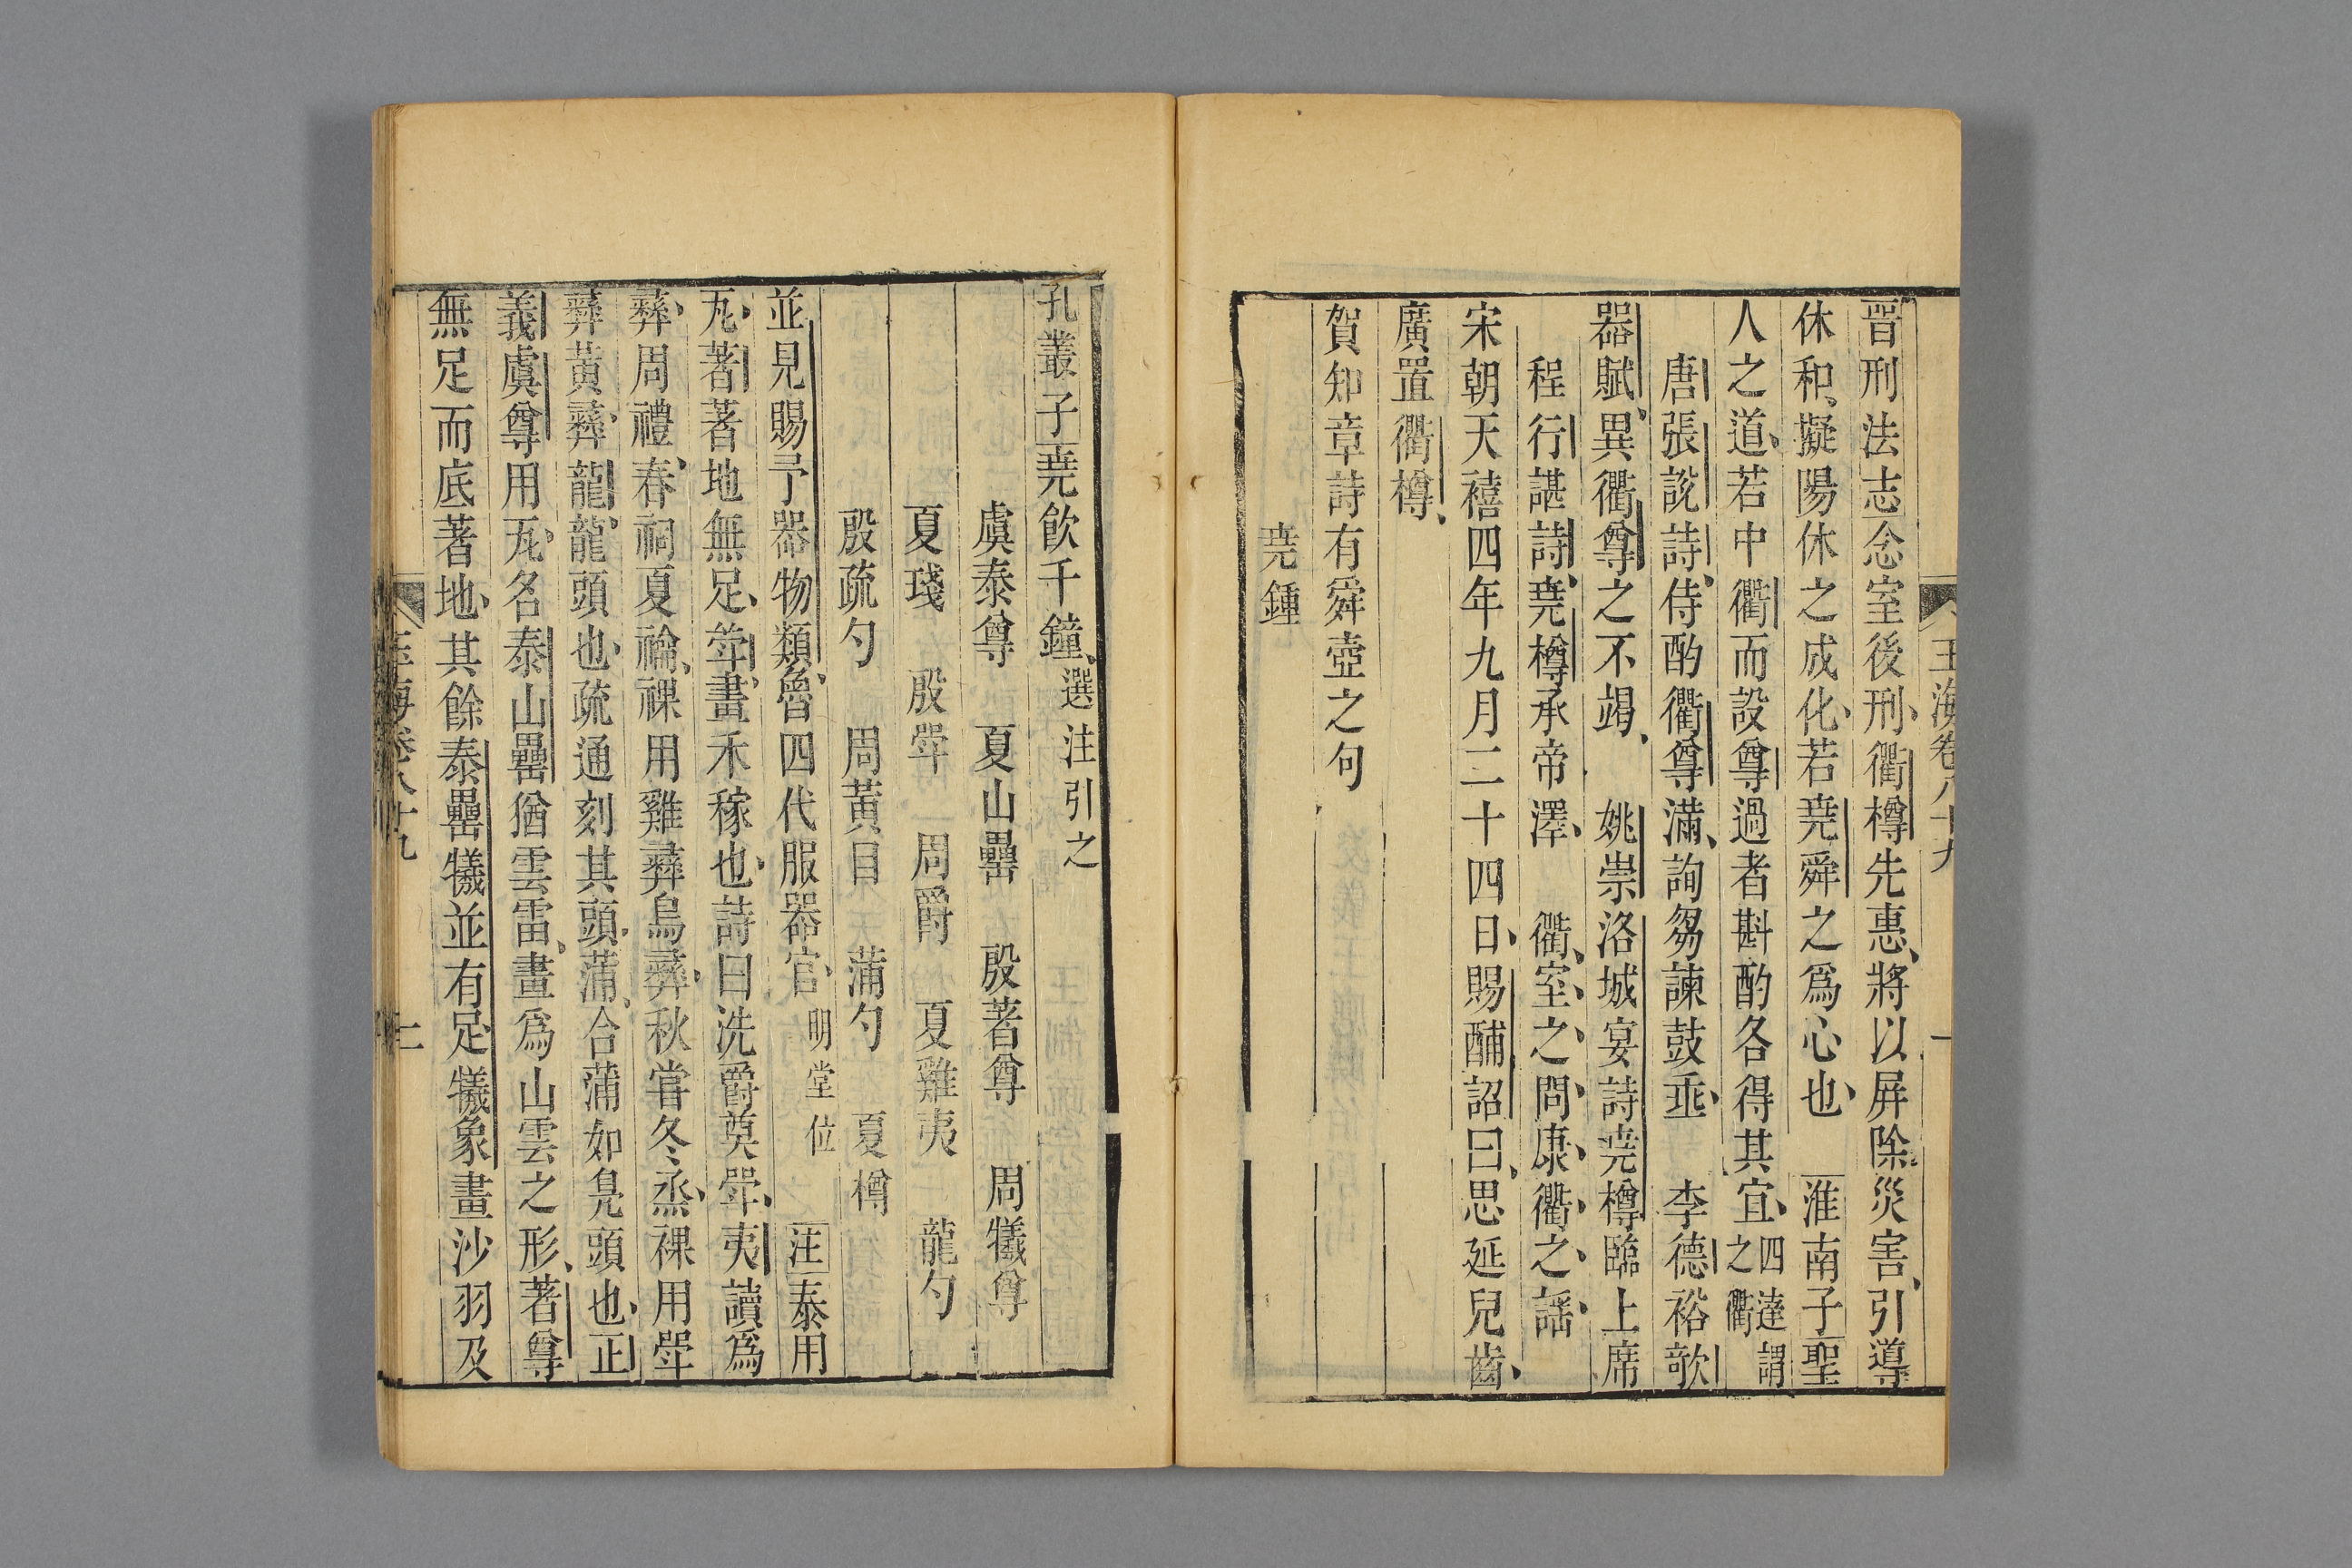 玉海卷八十九 一
晉刑法志念室後刑衢樽先惠將以屏除災害引導
休和擬陽休之成化若堯舜之爲心也 淮南子聖
人之道若中衢而設尊過者斟酌各得其宜四達謂之衢
唐張說詩侍酌衢尊滿詢芻諫鼓垂 李德裕欹
器賦異衢尊之不竭 姚崇洛城宴詩堯樽臨上席
程行諶詩堯樽承帝澤 衢室之問康衢之謡
宋朝天禧四年九月二十四日賜酺詔曰思延兒齒
廣置衢樽
賀知章詩有舜壺之句
堯鍾
孔叢子堯飲千鐘選注引之
虞泰尊 夏山罍 殷著尊 周犧尊
夏琖 殷斝 周爵 夏雞夷 龍勺
殷疏勺 周黃目 蒲勺 夏樽
並見賜予器物類魯四代服器官明堂位 注泰用
瓦著著地無足斝畫禾稼也詩曰洗爵奠斝夷讀爲
彝周禮春祠夏禴祼用雞彝鳥彝秋嘗冬烝祼用斝
彝黃彝龍龍頭也疏通刻其頭蒲合蒲如鳧頭也正
義虞尊用瓦名泰山罍猶雲雷畫爲山雲之形著尊
無足而底著地其餘泰罍犧並有足犧象畫沙羽及
玉海卷八十九 二